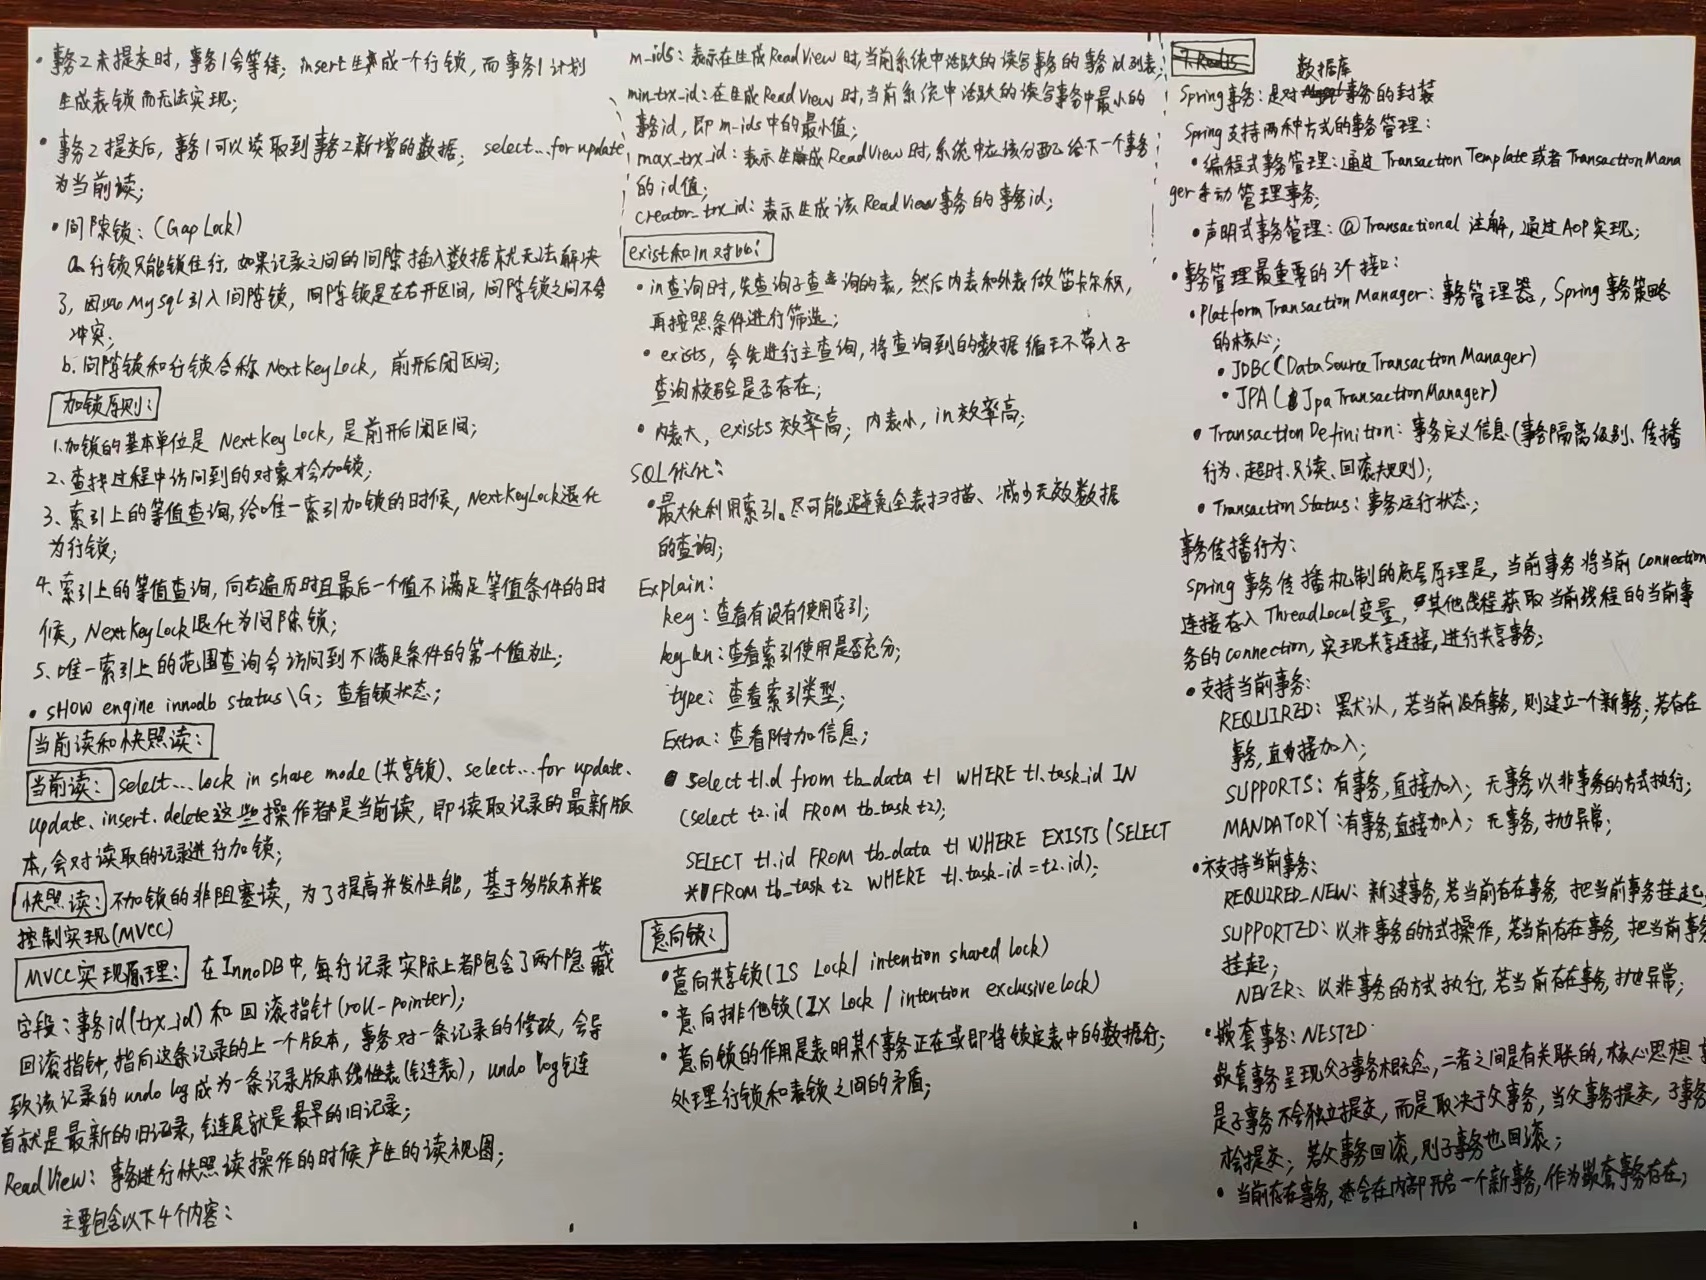 · 事务2未提交时，事务1会等待；insert生成一个行锁，而事务1计划
生成表锁而无法实现；
· 事务2提交后，事务1可以读取到事务2新增的数据；select...for update
为当前读；
· 间隙锁：(Gap Lock)
a. 行锁只能锁住行，如果记录之间的间隙插入数据就无法解决
了，因此MySql引入间隙锁，间隙锁是左右开区间，间隙锁之间不会
冲突；
b. 间隙锁和行锁合称NextKeyLock，前开后闭区间；
加锁原则：
1.加锁的基本单位是 NextKey Lock，是前开后闭区间；
2、查找过程中访问到的对象才会加锁；
3、索引上的等值查询，给唯一索引加锁的时候，NextKeyLock退化
为行锁；
4、索引上的等值查询，向右遍历时且最后一个值不满足等值条件的时
候，NextKeyLock退化为间隙锁；
5、唯一索引上的范围查询会访问到不满足条件的第一个值为止；
· SHOW engine innodb status\G；查看锁状态；
当前读和快照读：
当前读：select...lock in share mode(共享锁)、select...for update、
update、insert、delete这些操作都是当前读，即读取记录的最新版
本，会对读取的记录进行加锁；
快照读：不加锁的非阻塞读，为了提高并发性能，基于多版本并发
控制实现(MVCC)
MVCC实现原理：在InnoDB中，每行记录实际上都包含了两个隐藏
字段：事务id(trx_id)和回滚指针(roll-pointer)；
回滚指针，指向这条记录的上一个版本，事务对一条记录的修改，会导
致该记录的undo log成为一条记录版本线性表(链表)，undo log链
首就是最新的旧记录，链尾就是最早的旧记录；
ReadView：事务进行快照读操作的时候产生的读视图；
主要包含以下4个内容：
m_ids：表示在生成ReadView时，当前系统中活跃的读写事务的事务id列表；
min_trx_id：在生成ReadView时，当前系统中活跃的读写事务中最小的
事务id，即m-ids中的最小值；
max_trx_id：表示生成ReadView时，系统中应该分配给下一个事务
的id值；
creator_trx_id：表示生成该ReadView事务的事务id；
exist和in对比：
· in查询时，先查询子查询的表，然后内表和外表做笛卡尔积，
再按照条件进行筛选；
· exists，会先进行主查询，将查询到的数据循环带入子
查询校验是否存在；
· 内表大，exists效率高；内表小，in效率高；
SQL优化：
· 最大化利用索引。尽可能避免全表扫描、减少无效数据
的查询；
Explain：
key：查看有没有使用索引；
key_len：查看索引使用是否充分；
type：查看索引类型；
Extra：查看附加信息；
· select t1.d from tb_data t1 WHERE t1.task_id IN
(select t2.id FROM tb_task t2);
SELECT t1.id FROM tb_data t1 WHERE EXISTS (SELECT
* FROM tb_task t2 WHERE t1.task_id = t2.id);
意向锁：
· 意向共享锁(IS Lock/ intention shared lock)
· 意向排他锁(IX Lock / intention exclusive lock)
· 意向锁的作用是表明某个事务正在或即将锁定表中的数据行；
处理行锁和表锁之间的矛盾；
7.Redis
数据库
Spring事务：是对事务的封装
Spring支持两种方式的事务管理：
· 编程式事务管理：通过Transaction Template或者TransactionMana
ger手动管理事务；
· 声明式事务管理：@Transactional 注解，通过AOP实现；
· 事务管理最重要的3个接口：
· Platform Transaction Manager：事务管理器，Spring事务策略
的核心；
· JDBC(DataSource Transaction Manager)
· JPA(Jpa Transaction Manager)
· Transaction Definition：事务定义信息(事务隔离级别、传播
行为、超时、只读、回滚规则)；
· Transaction Status：事务运行状态；
事务传播行为：
Spring 事务传播机制的底层原理是，当前事务将当前connection
连接存入ThreadLocal变量，其他线程获取当前线程的当前事
务的connection，实现共享连接，进行共享事务；
· 支持当前事务：
REQUIRED：默认，若当前没有事务，则建立一个新事务；若存在
事务，直接加入；
SUPPORTS：有事务，直接加入；无事务以非事务的方式执行；
MANDATORY：有事务，直接加入；无事务，抛异常；
· 不支持当前事务：
REQUIRED_NEW：新建事务，若当前存在事务，把当前事务挂起；
SUPPORTED：以非事务的方式操作，若当前存在事务，把当前事务
挂起；
NEVER：以非事务的方式执行，若当前存在事务，抛异常；
· 嵌套事务：NESTED.
嵌套事务呈现父子事务概念，二者之间是有关联的，核心思想
是子事务不会独立提交，而是取决于父事务，当父事务提交，子事务
才会提交；若父事务回滚，则子事务也回滚；
· 当前存在事务，会在内部开启一个新事务，作为嵌套事务存在；